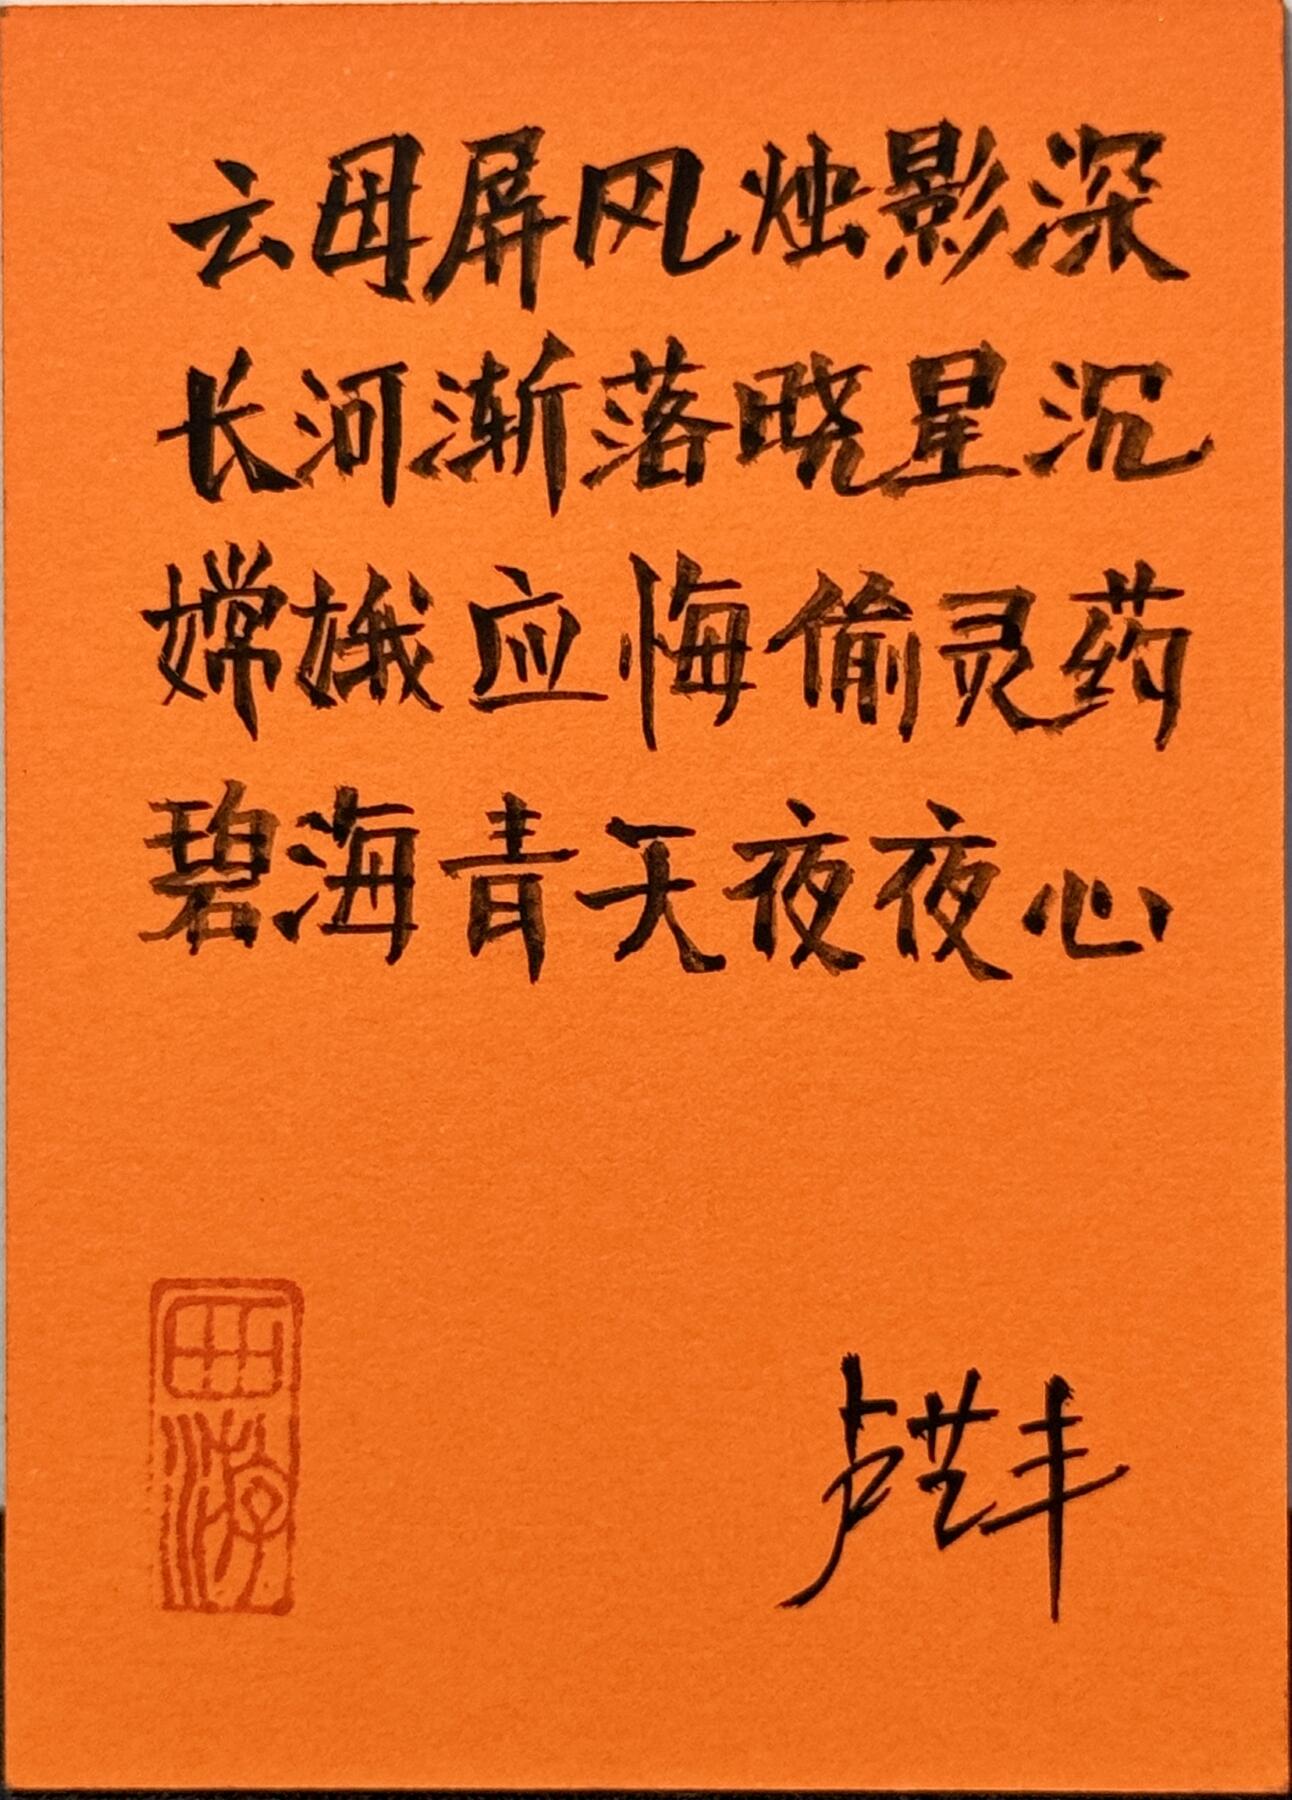 云母屏风烛影深
长河渐落晓星沉
嫦娥应悔偷灵药
碧海青天夜夜心
卢芸丰